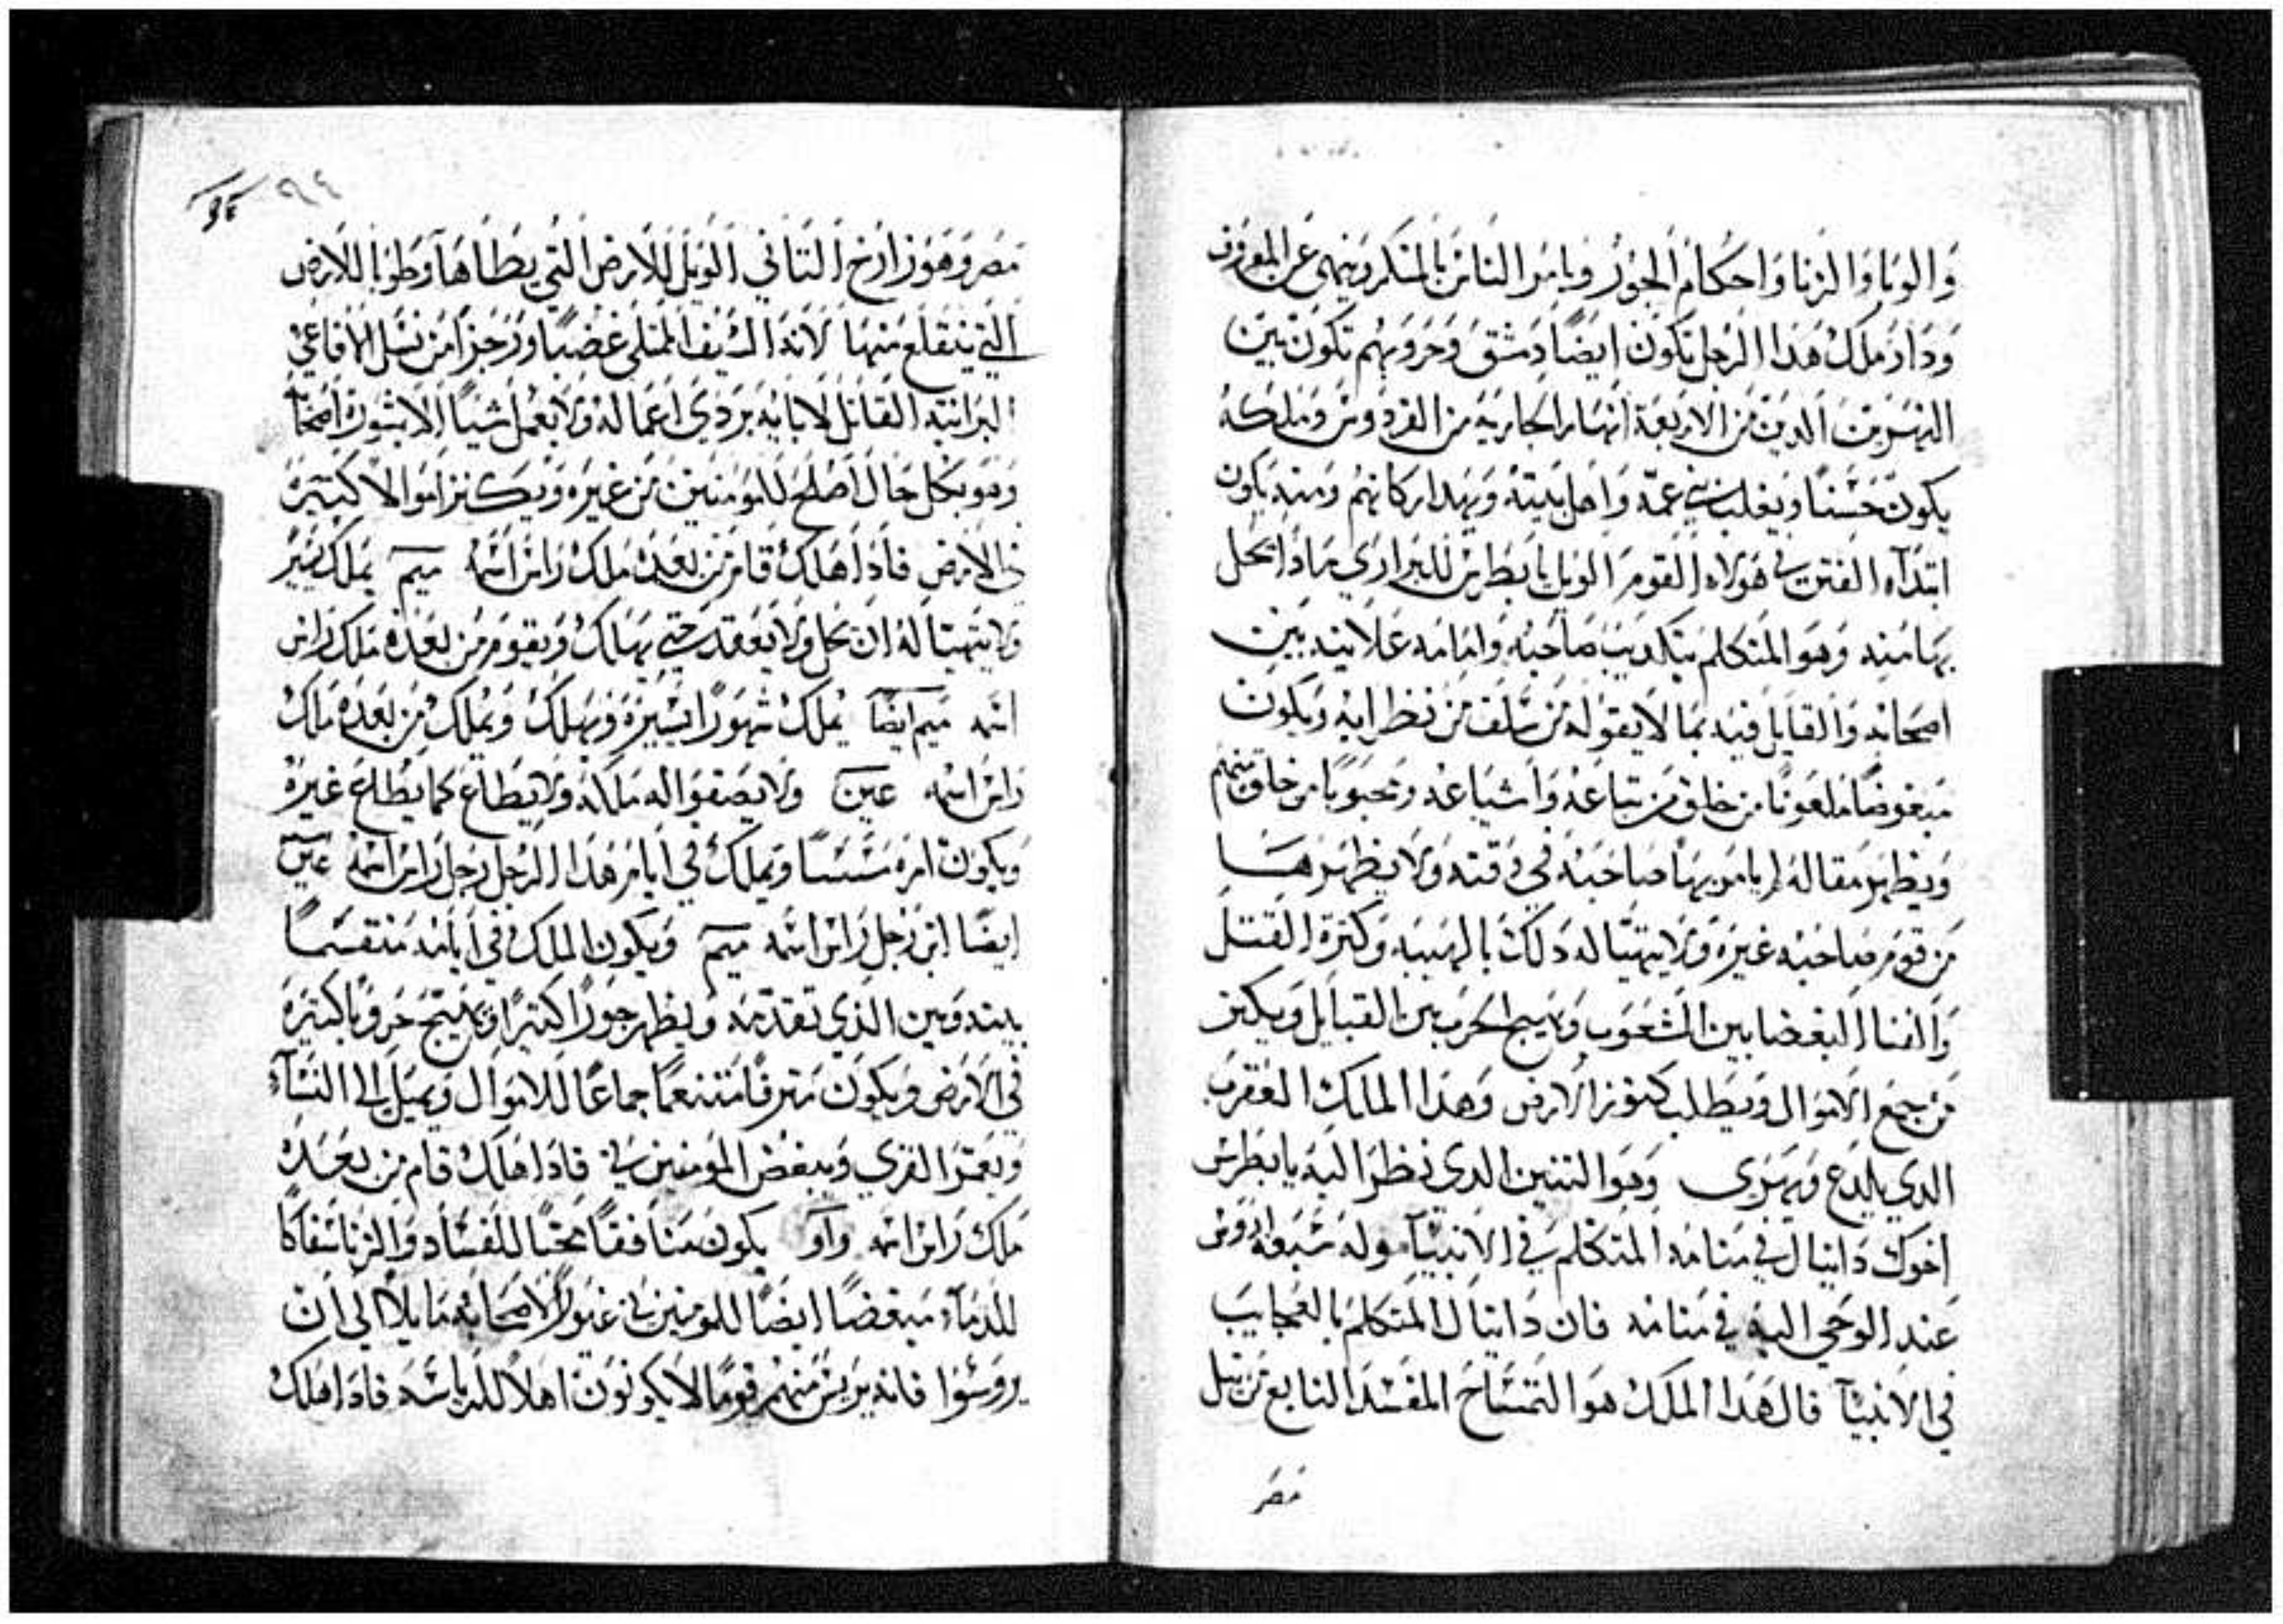 وَالوبَا وَالزنَا وَاحكَام الجَور وَيامَر النَاسَ بَالمنَكر وَينهى عَن المعروف
وَدَار مَلكْ هَدَا الرَجل تكَون ايضًا دَمشقَ وَحَروبَهُم تكَونَ بَينَ
النهَرين الدينَ مَن الاربعَة انهَار الجَاريَه مَن الفرَدوسَ وَملكَهُ
يكونَ خشنًا وَيغلب بَني عمّه وَاهل بَيتهُ وَيهَد اركانهُم وَمنه يكون
ابتدَآء الفتن في هَولاء القومَ الويل يا بَطرس للبَراري مَادَا يَحل
بهَا منه وَهوَ المتكلم بتكديب صَاحبَه وَامَامه عَلانيه بَين
اصحَابه وَالقايل فيه بمَا لا يقولهُ مَن سَلف مَن نظرايه وَيكَونَ
مَبغوضًا مَلعَونًا من خلق مَن تباعَه وَاشيَاعَه وَمحبوبًا من خلق منهم
وَيظهر مَقالة لم يامَر بهَا صَاحبَه في وَقته وَلا يظهرهَا
مَن قومَ صَاحبَه غيرَه وَلا يتهيَّا له دَلكَ بالهَيبَه وَكترة القتل
وَالفنا البغضَا بين الشعَوب وَيهيج الحَرب بين القبَايل وَيكتر
مَن جمَع الامَوال وَيطلب كنوز الارضَ وَهَدَا الملك العَقرب
الدي يلدَع وَيهرَب وَهوَ التنين الدي نظر اليهَ يا بطرسَ
اخَوك دَانيال في مَنامَه المتكلم في الانبيَآ وله سَبعَة ارَوس
عَند الوَحي اليهَ في مَنامَه فان دَانيال المَتكلم بالعجَايبَ
في الانبيَآ قال هَدَا الملكَ هوَ التمسَاحَ المفسَد النابع من نيل
مَصَر
٩٤
مَصَر وَهَوَ زارَح التَاني الويل للارض التي يطَاهَا وَطوَبا للارض
التي يتقلع مَنهَا لانهَ السَيف الممتلي غضبًا وَرَجزًا مَن نسَل الافاعَي
البَرانيَه القاتل لابايه بَردَي اعمَاله وَلا يعَمل شيًا الا بشَورة اصحَابَه
وَهوَ بكل حَال اصلَح للمومنين مَن غيرَه وَيكنز امَوالاً كتيرَة
في الارض فادَا هَلكَ قامَ مَن بعَدَه مَلكَ رَاس اسَمه ميم يَملك يَسير
وَلا يتهيَا لهُ ان يحل وَلا يعَقد حَتى يهَلكَ وَيقوم مَن بَعدَه مَلك رَاس
اسَمه ميم ايضًا يملكَ شهورًا يَسيرة وَيهلكَ وَيملكَ مَن بَعدَه مَلكَ
رَاس اسَمه عين وَلا يصَفوا له مَلكه وَلا يطَاع كما يُطَاع غيرَه
وَيكون امرَه مَشتتًا وَيملكَ في ايام هَدا الرَجل رَجل رَاس اسَمه عَين
ايضًا ابن رَجل رَاس اسَمه ميم وَيكون الملكَ في ايامه مَنقسَمًا
بينه وَبين الدي تقدمَه وَيظهر جَورًا كتيرًا وَيَهيج حَروَبًا كتيَرة
في الارَض وَيكون مَترفًا مَتنعمًا جماعًا للامَوال وَيميل الى النسَآء
وَيعَمر القرى وَيبغض المَومنين بي فادَا هَلكَ قام من بعَدَه
مَلك رَاس اسمه وَآو يكون مَنافقًا محَبًا للفسَاد وَالزنا سَفاكًا
للدمَآء مَبغضًا ايضًا للمومنين بي غيورًا لاصحَابَه مَايلاً الى ان
يروَسَوا فانه يريسَ منهم قومًا لا يكونونَ اهلاً للرياسَه فادَا هَلكَ